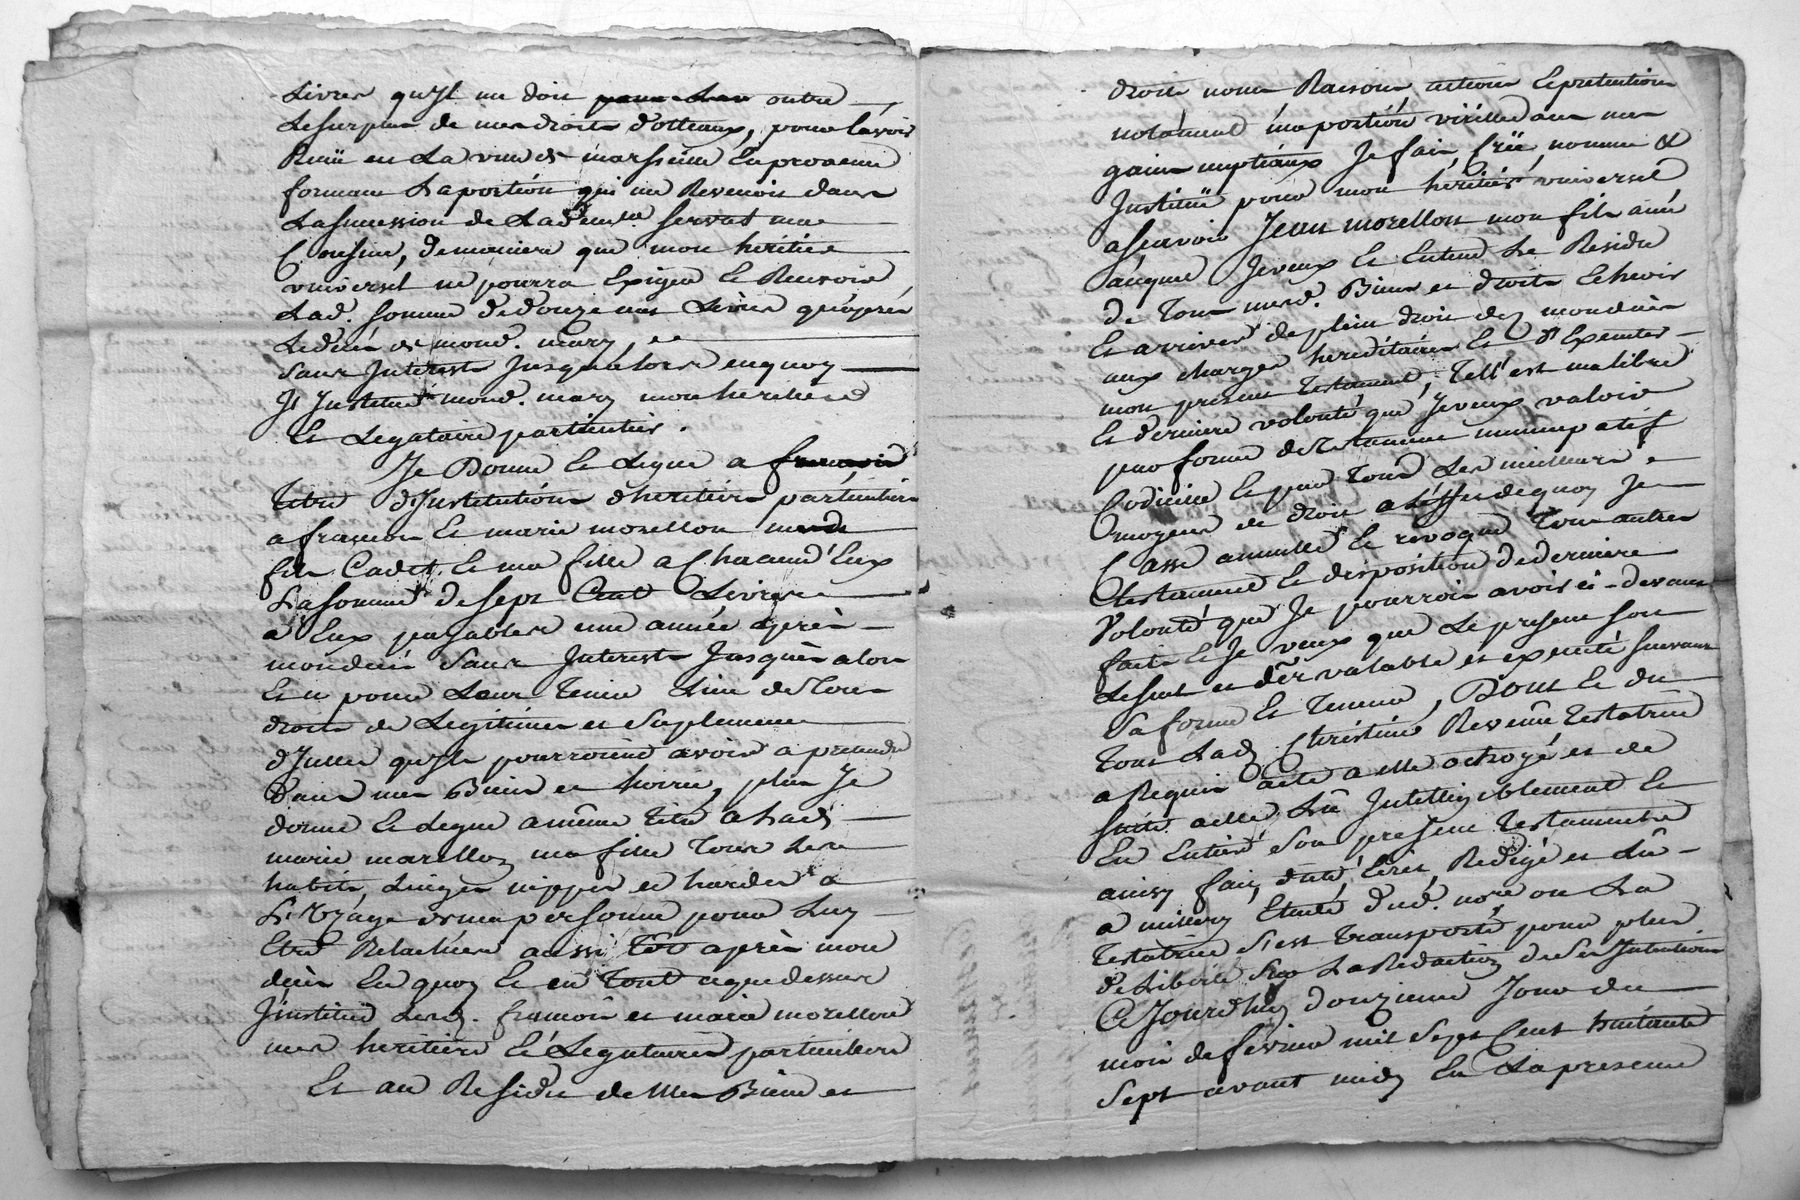 Livres qu'Jl me doit outre
Lesurplus de mes droits d'otteaux, pour lavoir
Reçü en La ville de marseille En provence
formant La portion qui me Revenoit dans
La succession de Lad servet ma
Cousine, demaniere que mon heritier
universel ne pourra Exiger Et Recevoir
Lad. somme dedouze cent Livres qu'après
Ledecés de mond. mary
sans Jnterest Jusqu'alors enquoy
J'Jnstitue mond. mary mon heritier
Et Legataire particulier.
Je Donne Et Legue a
titre d'Jnstitution d'heritiers particuliers
a francois Et marie morellon
fils Cadet Et ma fille a Chacun d'Eux
La somme de sept Cent Livres
a Eux payables une année après
mondecés sans Jnterest Jusques alors
Et ce pour Leur tenir Lieu detous
droits de Legitime et suplement
d'Jcelle qu'Jls pourroient avoir a pretendre
dans mes Biens et hoirie, plus Je
donne Et Legue a même titre a Lad.
marie morellon ma fille tous Les
habits, Linges nippes et hardes a
L'Uzage de ma personne pour Luy
Etre Relachées aussi tôt après mon
decès En quoy Et en tout ceque dessus
J'institue Lesd. francois et marie morellon
mes heritiers Et Legataires particuliers
Et au Residu de Mes Biens et
droits noms Raisons actions Et pretentions
notament ma portion virille dans mes
gains nuptiaux Je fais, crée, nomme &
Jnstitue pour mon héritier universel
a scavoir Jean morellon mon fils ainé
auquel Jeveux Et Entend Le Residu
de tous mesd. Biens et droits Echeoir
Et arriver deplein droit dez mondecès
aux charges hereditaires Et d'Executer
mon present testament, tell' est ma libre
Et derniere volonté que Jeveux valoir
par forme de testament nuncupatif
Codicille Et par tous Les meilleurs
moyens de droit a L'Effet dequoy Je
Casse annulle Et revoque tous autres
testament Et disposition dederniere
Volonté que Je pourrois avoir ci-devant
faits Et Je veux que Le present soit
Leseul et valable et executé suivant
Sa forme Et teneur, Dont Et du
tout Lad. Christine testatrice
a Requis acte a elle octroyé et de
suite a elle Lû Jntelligiblement Et
En Entier Son present testament
ainsy fait, dicté, Ecrit, Redigé et Lû
a millery Etude dud. no.re ou La
testatrice s'est transporté pour plus
de Liberté sur La Redaction de ses Jntentions
Cejourd'huy douzieme Jour du
mois de fevrier mil sept Cent huitante
sept avant midy En La presence